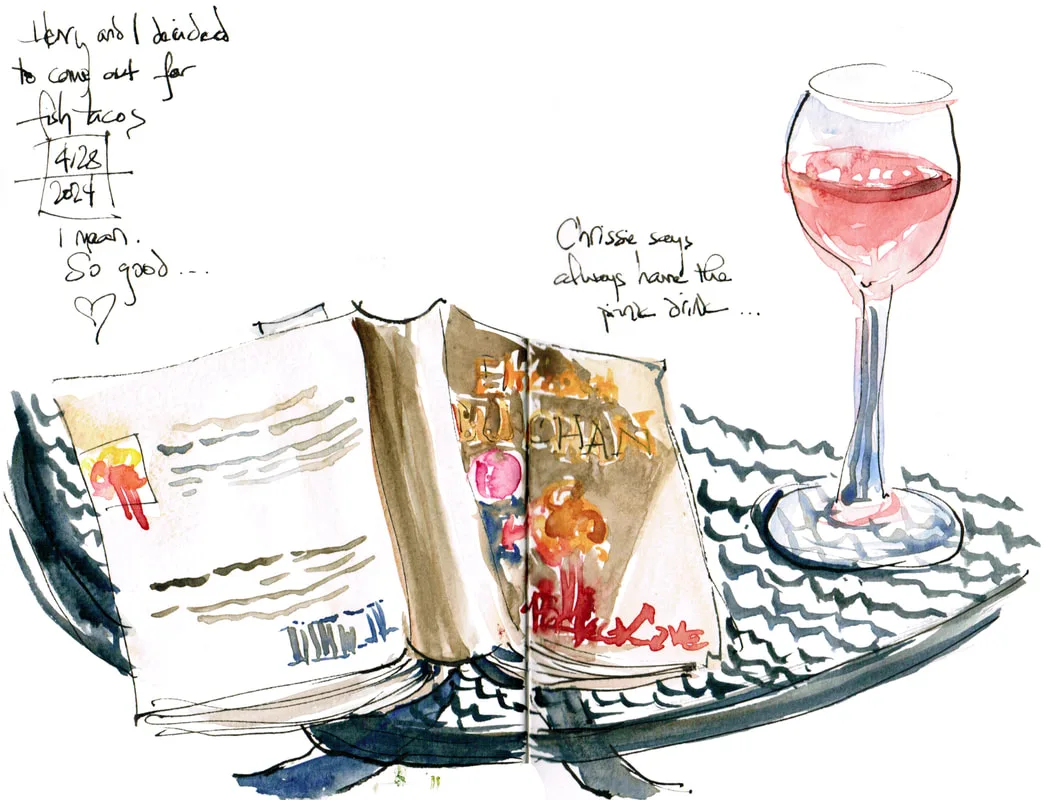 Henry and I decided
to come out for
fish tacos
4/28
2024
I mean.
So good...
Chrissie says
always have the
pink drink...
Elizabeth
BUCHAN
Perfect Love